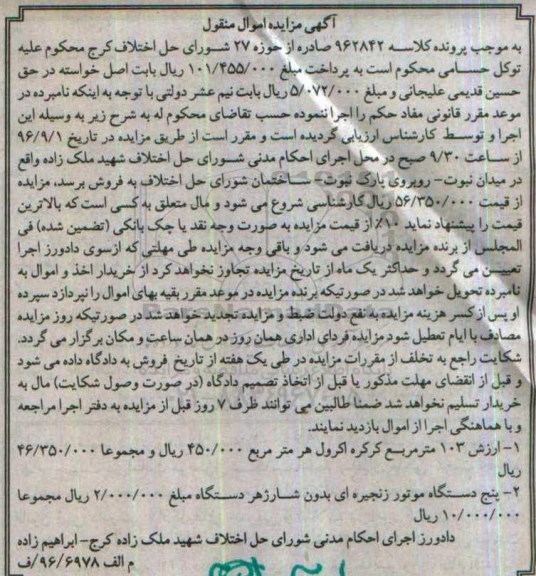 آگهی مزایده اموال منقول
به موجب پرونده کلاسه ۹۶۲۸۴۲ صادره از حوزه ۲۷ شورای حل اختلاف کرج محکوم علیه
توکل حسامی محکوم است به پرداخت مبلغ ۱۰۱/۴۵۵/۰۰۰ ریال بابت اصل خواسته در حق
حسین قدیمی علیجانی و مبلغ ۵/۰۷۲/۰۰۰ ریال بابت نیم عشر دولتی با توجه به اینکه نامبرده در
موعد مقرر قانونی مفاد حکم را اجرا ننموده حسب تقاضای محکوم له به شرح زیر به وسیله این
اجرا و توسط کارشناس ارزیابی گردیده است و مقرر است از طریق مزایده در تاریخ ۹۶/۹/۱
از ساعت ۹/۳۰ صبح در محل اجرای احکام مدنی شورای حل اختلاف شهید ملک زاده واقع
در میدان نبوت- روبروی پارک نبوت- ساختمان شورای حل اختلاف به فروش برسد، مزایده
از قیمت ۵۶/۳۵۰/۰۰۰ ریال کارشناسی شروع می شود و مال متعلق به کسی است که بالاترین
قیمت را پیشنهاد نماید ۱۰٪ از قیمت مزایده به صورت وجه نقد یا چک بانکی (تضمین شده) فی
المجلس از برنده مزایده دریافت می شود و باقی وجه مزایده طی مهلتی که ازسوی دادورز اجرا
تعیین می گردد و حداکثر یک ماه از تاریخ مزایده تجاوز نخواهد کرد از خریدار اخذ و اموال به
نامبرده تحویل خواهد شد در صورتیکه برنده مزایده در موعد مقرر بقیه بهای اموال را نپردازد سپرده
او پس از کسر هزینه مزایده به نفع دولت ضبط و مزایده تجدید خواهد شد در صورتیکه روز مزایده
مصادف با ایام تعطیل شود مزایده فردای اداری همان روز در همان ساعت و مکان برگزار می گردد.
شکایت راجع به تخلف از مقررات مزایده در طی یک هفته از تاریخ فروش به دادگاه داده می شود
و قبل از انقضای مهلت مذکور یا قبل از اتخاذ تصمیم دادگاه (در صورت وصول شکایت) مال به
خریدار تسلیم نخواهد شد ضمنا طالبین می توانند ظرف ۷ روز قبل از مزایده به دفتر اجرا مراجعه
و با هماهنگی اجرا از اموال بازدید نمایند.
۱- ارزش ۱۰۳ مترمربع کرکره اکرول هر متر مربع ۴۵۰/۰۰۰ ریال و مجموعا ۴۶/۳۵۰/۰۰۰
ریال
۲- پنج دستگاه موتور زنجیره ای بدون شارژهر دستگاه مبلغ ۲/۰۰۰/۰۰۰ ریال مجموعا
۱۰/۰۰۰/۰۰۰ ریال
دادورز اجرای احکام مدنی شورای حل اختلاف شهید ملک زاده کرج- ابراهیم زاده
م الف ۹۶/۶۹۷۸/ف